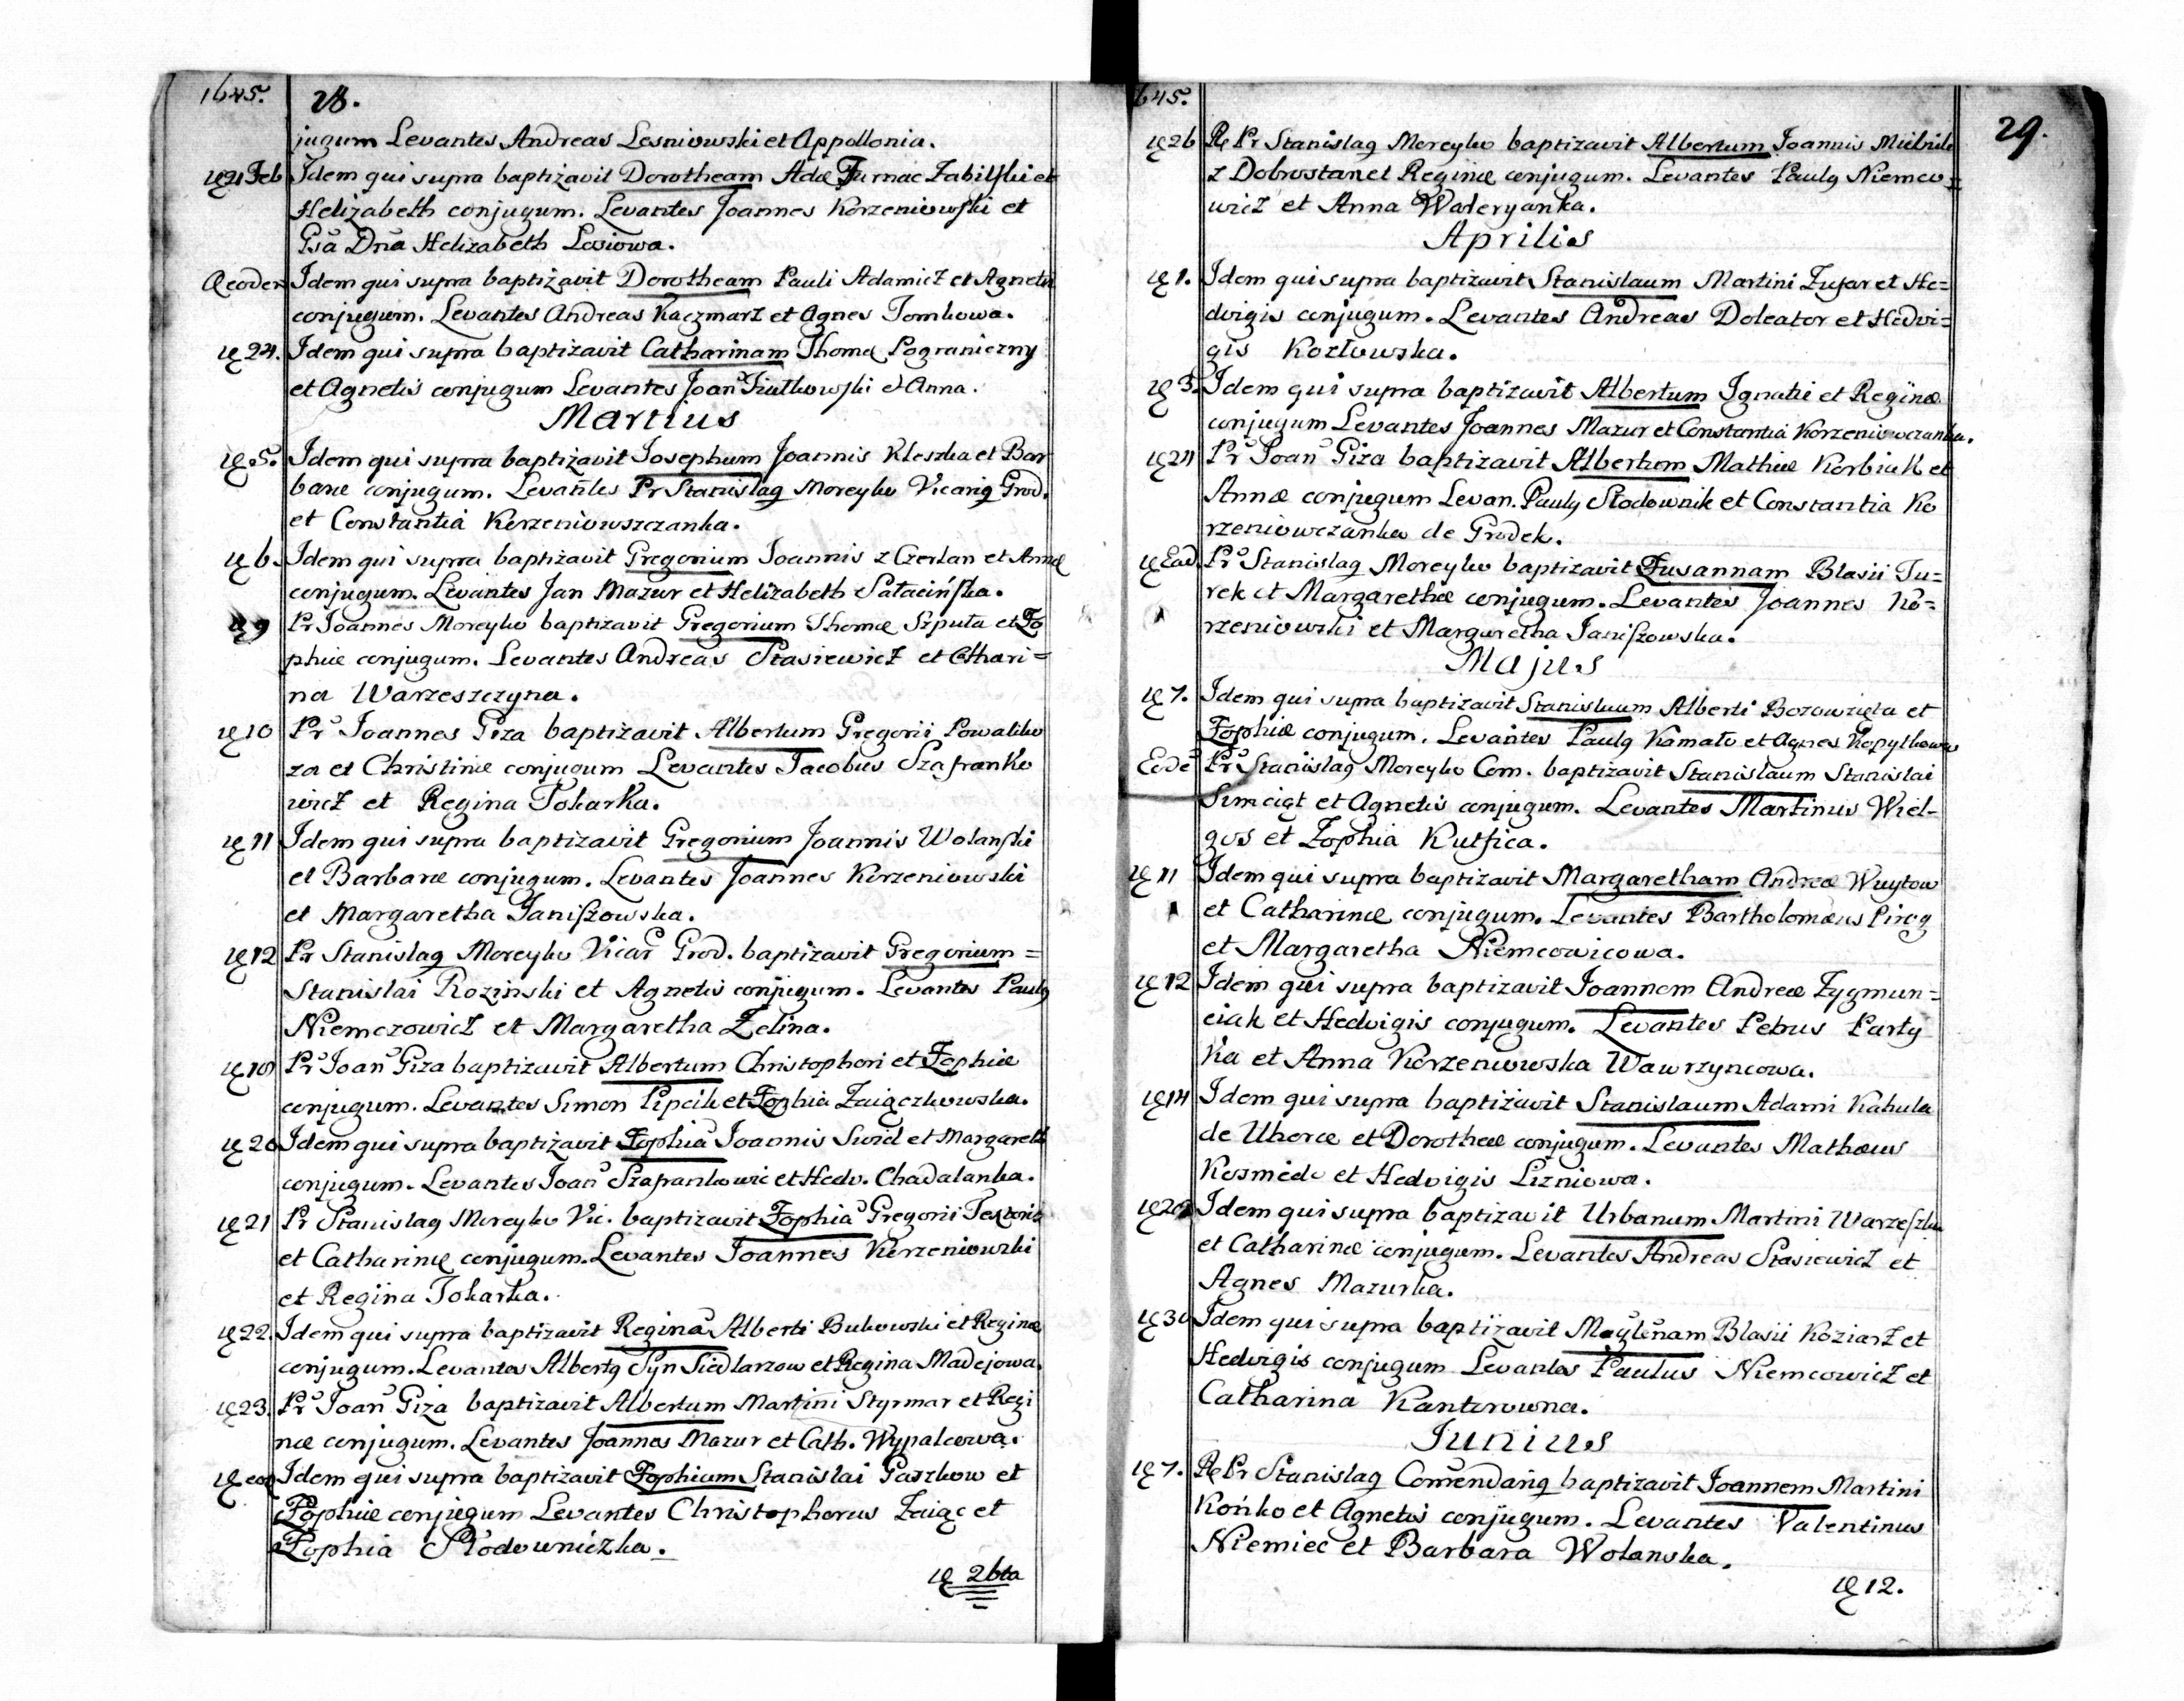 1645. 28.
jugum Levantes Andreas Lesniowski et Appollonia.
21 Feb Idem qui supra baptizavit Dorotheam Adæ Furnac Zabilski et
Helizabeth conjugum. Levantes Joannes Korzeniowski et
Gsa Dna Helizabeth Lesiowa.
eodem Idem qui supra baptizavit Dorotheam Pauli Adamicz et Agnetis
conjugum. Levantes Andreas Kaczmarz et Agnes Tomkowa.
24. Idem qui supra baptizavit Catharinam Thomæ Pograniczny
et Agnetis conjugum Levantes Joan Fiutkowski et Anna.
Martius
5. Idem qui supra baptizavit Josephum Joannis Kleszka et Bar
baræ conjugum. Levantes Pr Stanislaq Moreyko Vicariq Grod.
et Constantia Korzeniowszczanka.
6. Idem qui supra baptizavit Gregorium Joannis z Czerlan et Annæ
conjugum. Levantes Jan Mazur et Helizabeth Sałacińska.
9 Pr Joannes Moreyko baptizavit Gregorium Thomæ Srputa et Zo
phiæ conjugum. Levantes Andreas Stasiewicz et Cathari=
na Warzeszczyna.
10 Pr Joannes Giza baptizavit Albertum Gregorii Powaliko
za et Christinæ conjugum Levantes Jacobus Szafranko
wicz et Regina Tokarka.
11 Idem qui supra baptizavit Gregorium Joannis Wolanski
et Barbaræ conjugum. Levantes Joannes Korzeniowski
et Margaretha Janiszowska.
12 Pr Stanislaq Moreyko Vicar Grod. baptizavit Gregorium =
Stanislai Rozinski et Agnetis conjugum. Levantes Paulq
Niemczowicz et Margaretha Zelina.
Pr Joan Giza baptizavit Albertum Christophori et Zophiæ
conjugum. Levantes Simon Pipcik et Zophia Zaiączkowska.
20 Idem qui supra baptizavit Zophia Joannis Swid et Margareth
conjugum. Levantes Joan Szafrankowic et Hedv. Chadalanka.
21 Pr Stanislaq Moreyko Vic. baptizavit Zophia Gregorii Textoris
et Catharinæ conjugum. Levantes Joannes Korzeniowski
et Regina Tokarka.
22. Idem qui supra baptizavit Regina Alberti Bukowski et Reginæ
conjugum. Levantes Albertq Syn Siedlarzow et Regina Madejowa.
23. Pr Joan Giza baptizavit Albertum Martini Styrmar et Regi
næ conjugum. Levantes Joannes Mazur et Cath. Wypalcowa.
eod Idem qui supra baptizavit Zophium Stanislai Paszkow et
Zophiæ conjugum Levantes Christophorus Zaiąc et
Zophia Słodowniczka.
26ta
645. 29.
26 R Pr Stanislaq Moreyko baptizavit Albertum Joannis
z Dobrostan et Reginæ conjugum. Levantes Paulq Niemco=
wicz et Anna Waleryanka.
Aprilis
1. Idem qui supra baptizavit Stanislaum Martini Zusar et He=
dvigis conjugum. Levantes Andreas Doleator et Hedvi=
gis Kozłowska.
3. Idem qui supra baptizavit Albertum Ignatii et Reginæ
conjugum Levantes Joannes Mazur et Constantia Korzeniowczanka.
Pr Joan Giza baptizavit Albertum Mathiæ Korbiak et
Annæ conjugum Levan. Paulq Słodownik et Constantia Ko
rzeniowczanka de Grodek.
Ead. Pr Stanislaq Moreyko baptizavit Zusannam Blasii Tu=
rek et Margarethæ conjugum. Levantes Joannes Ko=
rzeniowski et Margaretha Janiszowska.
Majus
7. Idem qui supra baptizavit Stanislaum Alberti Bozowzięta et
Zophiæ conjugum. Levantes Paulq Kamało et Agnes Kopytkowa
Eode Pr Stanislaq Moreyko Com. baptizavit Stanislaum Stanislai
Simciąt et Agnetis conjugum. Levantes Martinus Wiel-
gos et Zophia Kutsica.
11 Idem qui supra baptizavit Margaretham Andreæ Wuytow
et Catharinæ conjugum. Levantes Bartholomæus Pirog
et Margaretha Niemcowicowa.
12 Idem qui supra baptizavit Joannem Andreæ Zygmun=
ciak et Hedvigis conjugum. Levantes Petrus Party
ka et Anna Korzeniowska Wawrzyncowa.
14 Idem qui supra baptizavit Stanislaum Adami Kahula
de Uherce et Dorotheæ conjugum. Levantes Mathæus
Kosmide et Hedvigis Lizniowa.
Idem qui supra baptizavit Urbanum Martini Warzeszka
et Catharinæ conjugum. Levantes Andreas Stasiewicz et
Agnes Mazurka.
30 Idem qui supra baptizavit Maglenam Blasii Koziarz et
Hedvigis conjugum Levantes Paulus Niemcowicz et
Catharina Kantorowna.
Junius
7. R Pr Stanislaq Comendariq baptizavit Joannem Martini
Końko et Agnetis conjugum. Levantes Valentinus
Niemiec et Barbara Wolanska.
12.